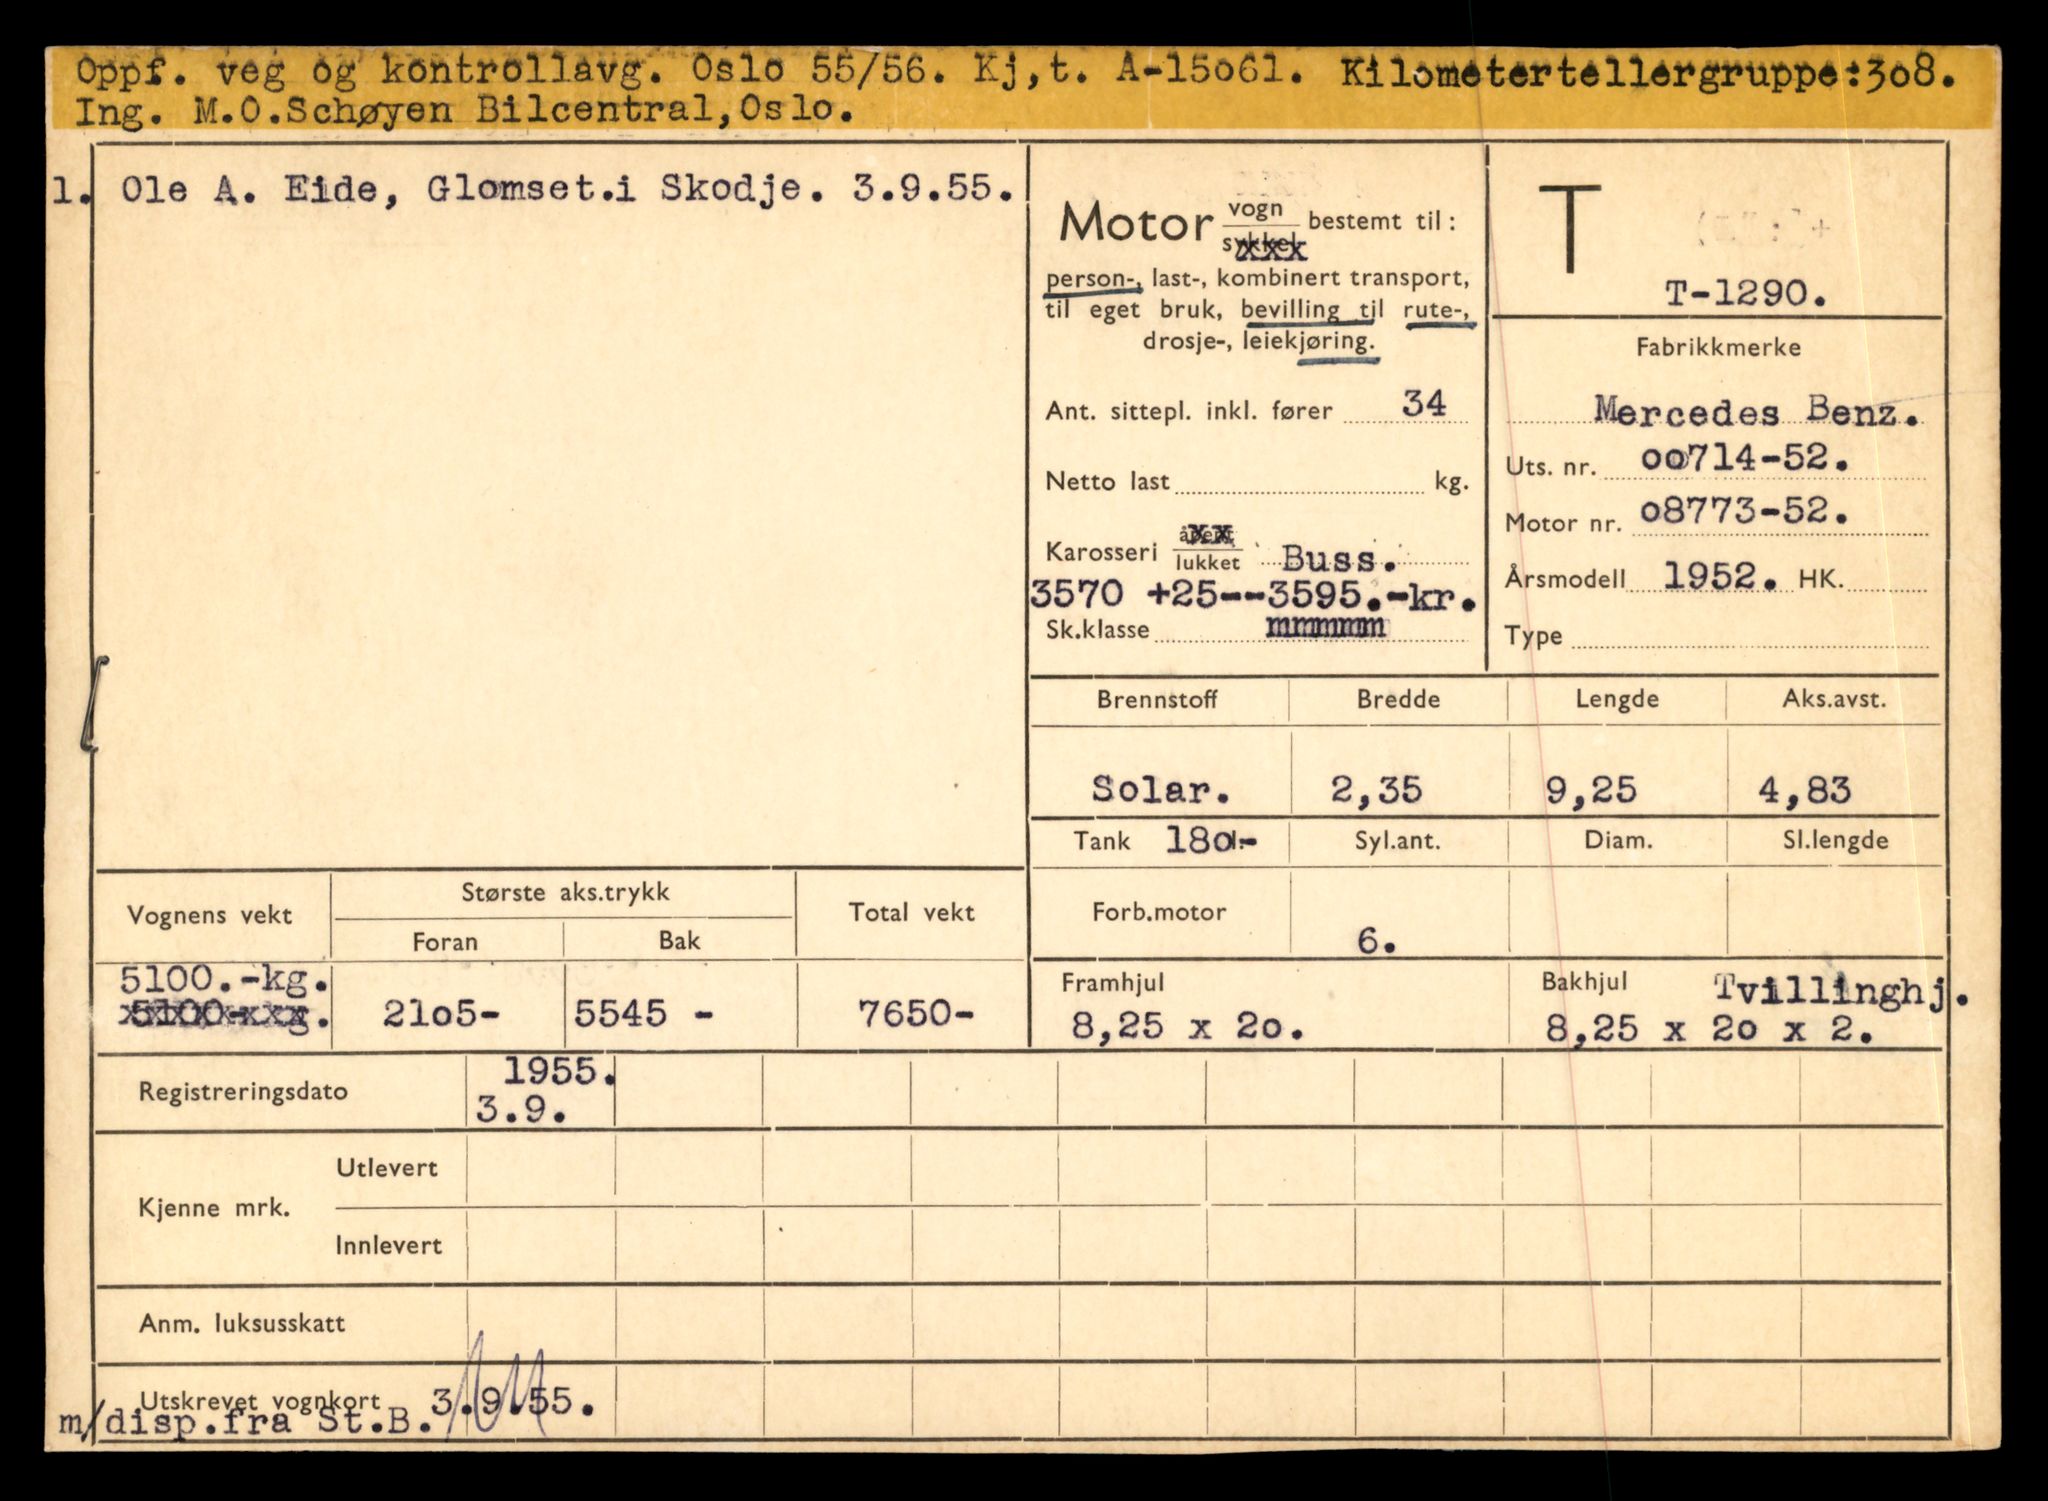 Oppf. veg og kontrollavg. Oslo 55/56. Kj,t. A-15o61. Kilometertellergruppe:3o8.
Ing. M.O.Schøyen Bilcentral,Oslo.
1. Ole A. Eide, Glomset.i Skodje. 3.9.55.
Motor vogn/sykkel bestemt til:
person-, last-, kombinert transport,
til eget bruk, bevilling til rute-,
drosje-, leiekjøring.
Ant. sittepl. inkl. fører 34
Netto last kg.
Karosseri åpent/lukket Buss.
3570 +25--3595.-kr.
Sk.klasse mmmmmm
T
T-1290.
Fabrikkmerke
Mercedes Benz.
Uts. nr. oo714-52.
Motor nr. o8773-52.
Årsmodell 1952. HK.
Type
Brennstoff Bredde Lengde Aks.avst.
Solar. 2,35 9,25 4,83
Tank 18o1.- Syl.ant. Diam. Sl.lengde
Forb.motor 6.
Framhjul Bakhjul Tvillinghj.
8,25 x 2o. 8,25 x 2o x 2.
Vognens vekt Største aks.trykk Total vekt
Foran Bak
5100.-kg.
5100-kg. 21o5- 5545 - 7650-
Registreringsdato 1955.
3.9.
Kjenne mrk. Utlevert
Innlevert
Anm. luksusskatt
Utskrevet vognkort 3.9.55.
m/disp.fra St.B.